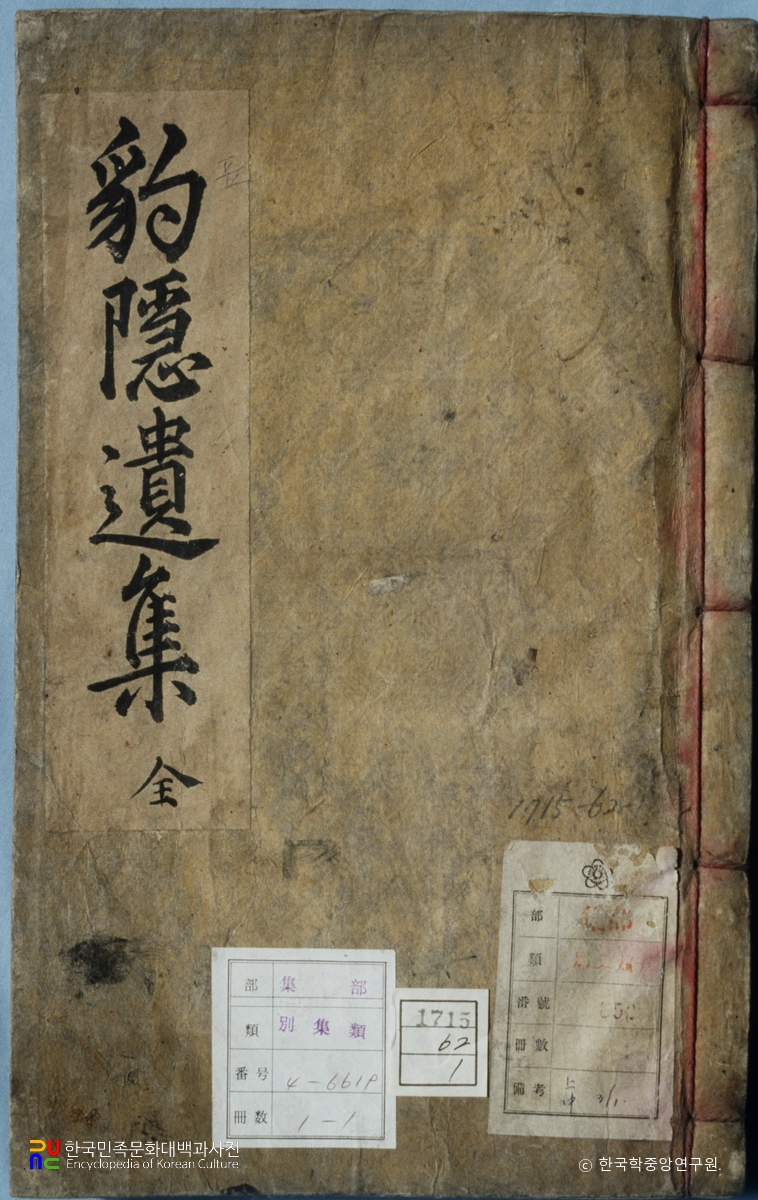 豹隱遺集
全
1715-62-1
部 集部
類 別集類
番号 4-6619
冊数 1-1
1715
62
1
部
類
番號
冊數
備考
한국민족문화대백과사전
Encyclopedia of Korean Culture
ⓒ 한국학중앙연구원